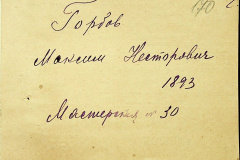 170
Горбов
Максим Несторович
1893
Мастерская № 30